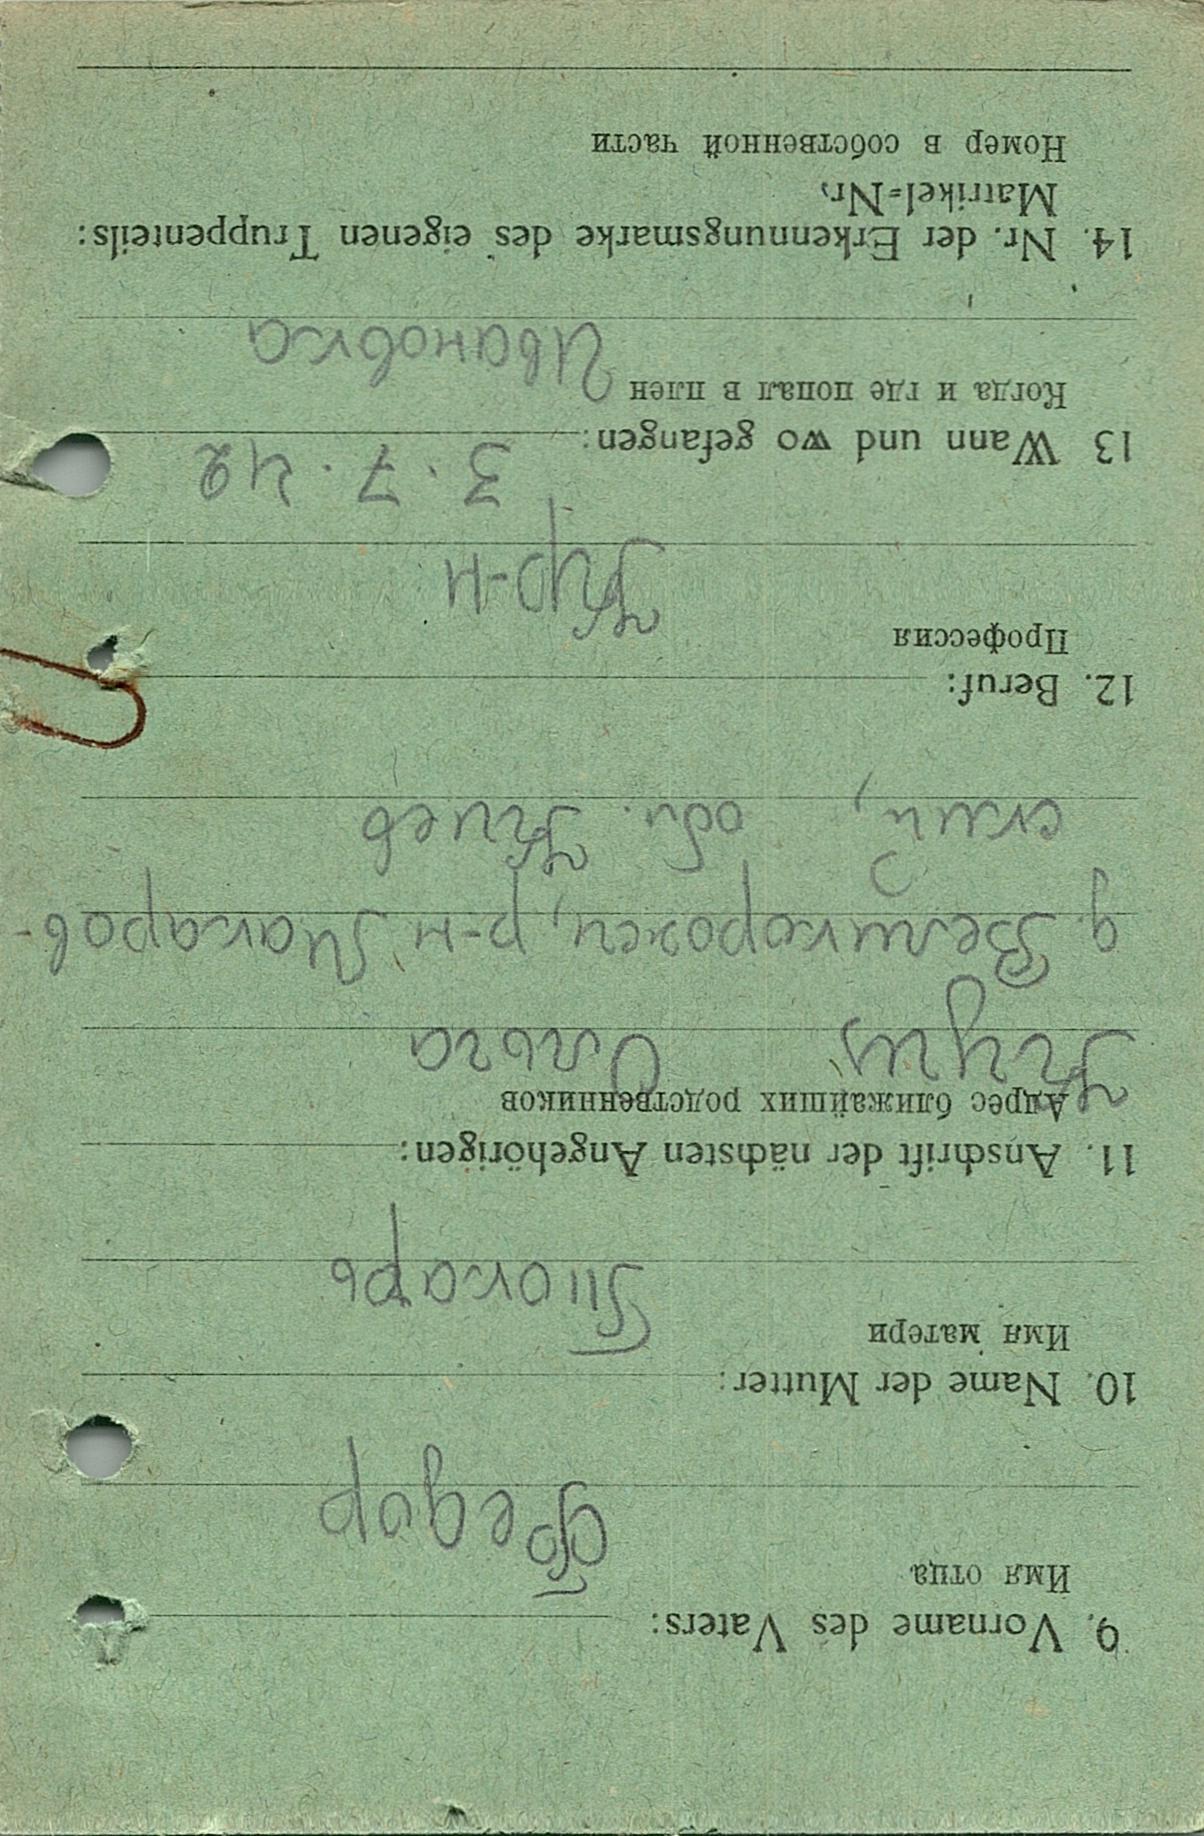 9. Vorname des Vaters:
Имя отца
Федор
10. Name der Mutter:
Имя матери
Токарь
11. Anschrift der nächsten Angehörigen:
Адрес ближайших родственников
Ольга
д. Великорожен, р-н Макаров-
ский, обл. Киев
12. Beruf:
Профессия
13 Wann und wo gefangen:
3. 7. 42
Когда и где попал в плен
Ивановка
14. Nr. der Erkennungsmarke des eigenen Truppenteils:
Matrikel-Nr.
Номер в собственной части